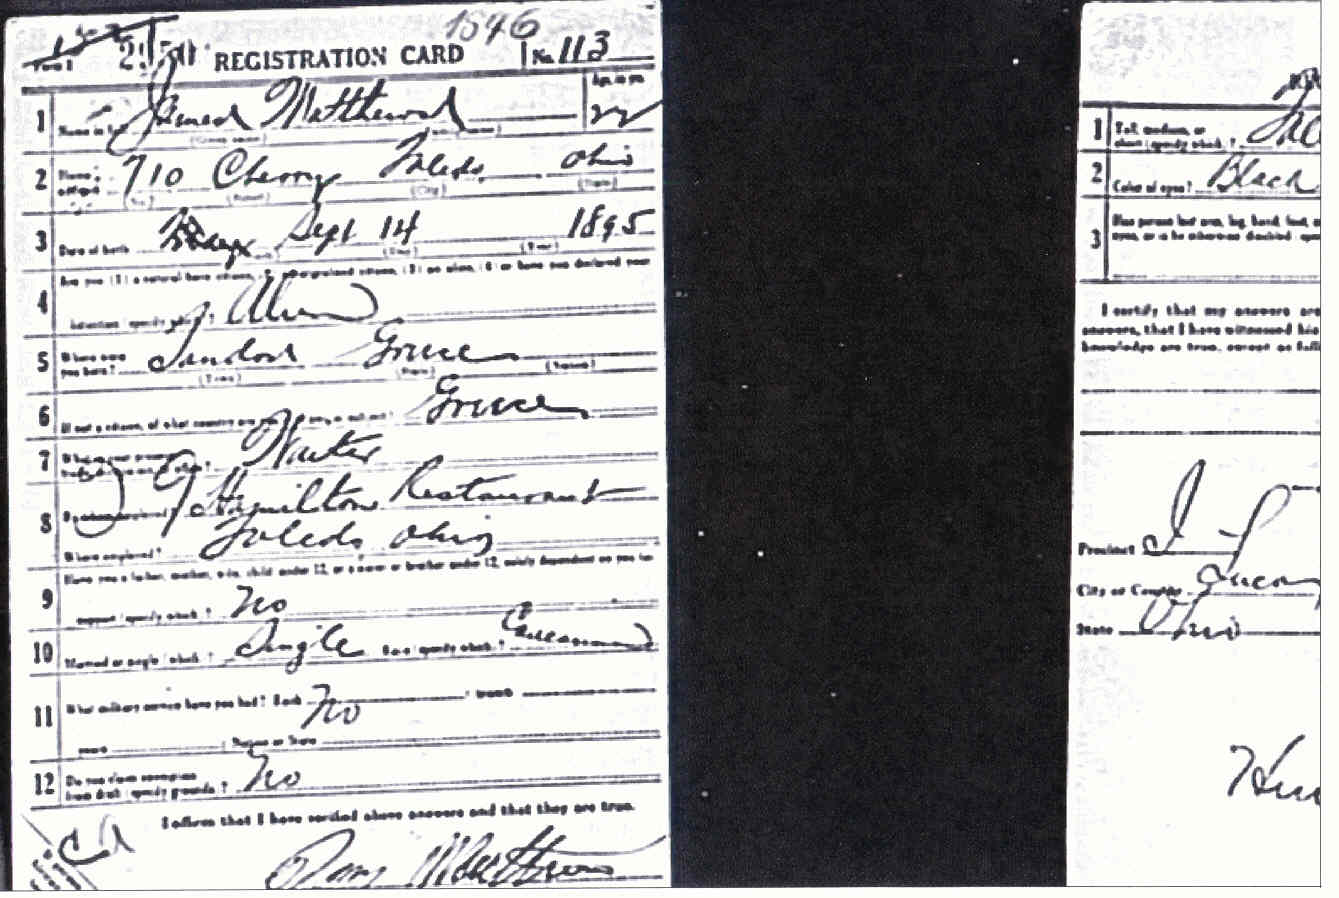 1596
REGISTRATION CARD No. 113
1 Name in full James Matthews Age, in yrs. 22
(Given name)
2 Home address 710 Cherry Toledo Ohio
(No.) (Street) (City) (State)
3 Date of birth Sept 14 1895
(Day) (Year)
4 Are you (1) a natural born citizen, (2) a naturalized citizen, (3) an alien, (4) or have you declared your
intention (specify which)? Alien
5 Where were you born? Greece
(Town) (State) (Nation)
6 If not a citizen, of what country are you a citizen or subject? Greece
7 Waiter
8 By whom employed? Hamilton Restaurant
Where employed? Toledo Ohio
9 Have you a father, mother, wife, child under 12, or a sister or brother under 12, solely dependent on you for
support (specify which)? No
10 Married or single (which)? Single Race (specify which)? Caucasian
11 What military service have you had? Rank No ; branch
years ; Nation or State
12 Do you claim exemption
from draft (specify grounds)? No
I affirm that I have verified above answers and that they are true.
Matthews
1 Tall, medium, or
short (specify which)?
2 Color of eyes? Black
3 Has person lost arm, leg, hand, foot,
eyes, or is he otherwise disabled
I certify that my answers are
answers, that I have witnessed his
knowledge are true, except as
Precinct
City or County
State Ohio